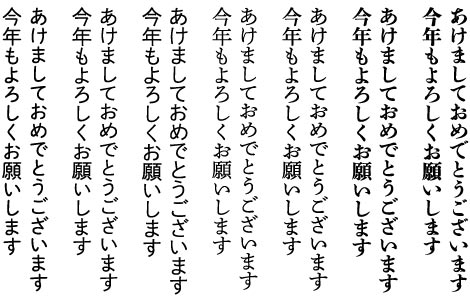 あけましておめでとうございます
今年もよろしくお願いします
あけましておめでとうございます
今年もよろしくお願いします
あけましておめでとうございます
今年もよろしくお願いします
あけましておめでとうございます
今年もよろしくお願いします
あけましておめでとうございます
今年もよろしくお願いします
あけましておめでとうございます
今年もよろしくお願いします
あけましておめでとうございます
今年もよろしくお願いします